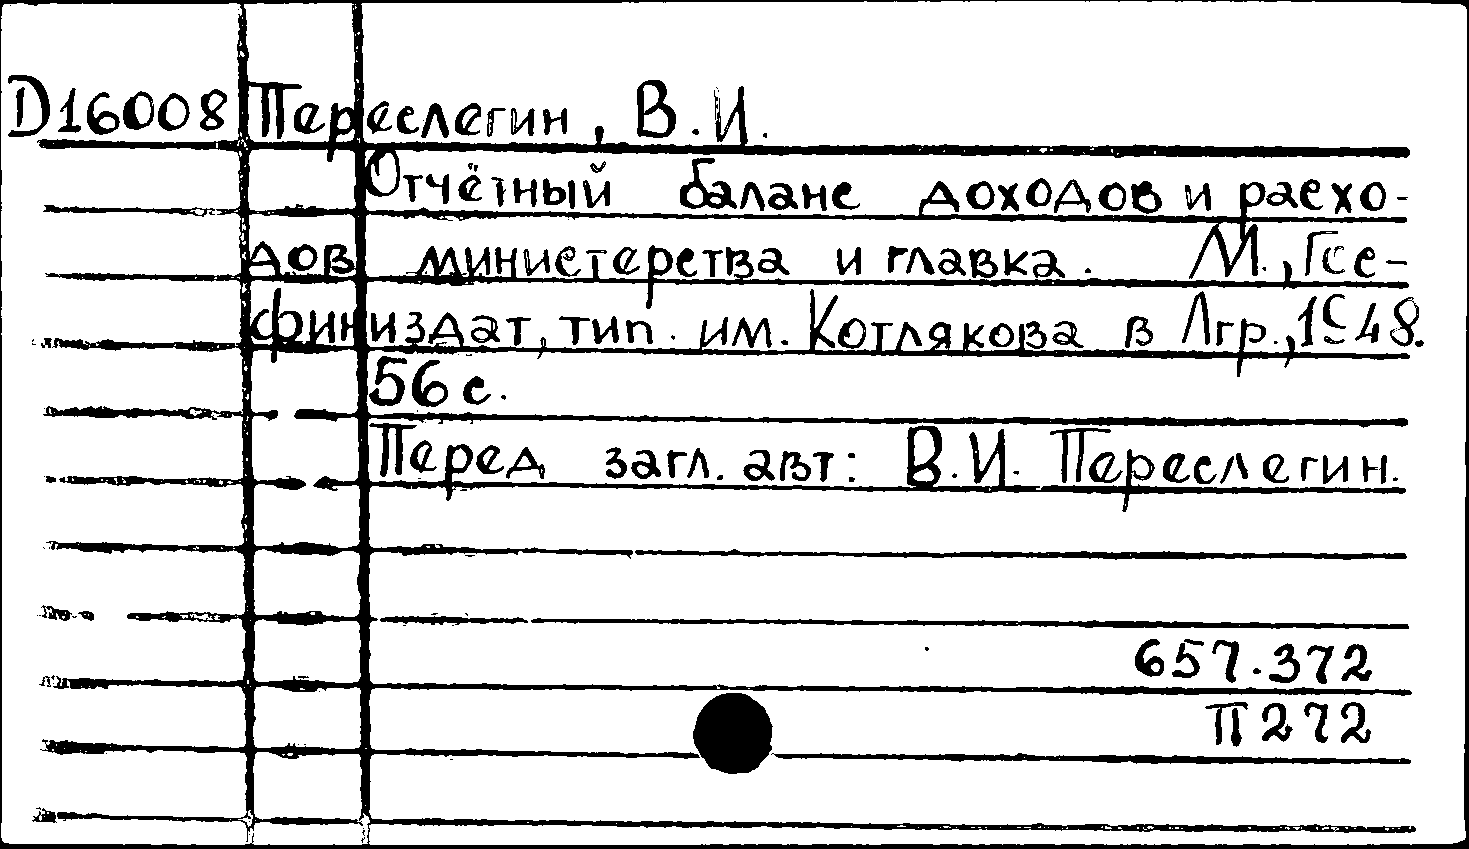 D16008 Переслегин, В.И.
Отчётный баланс доходов и расхо-
дов министерства и главка. М., Гос-
финиздат, тип. им. Котлякова в Лгр., 1948.
56 с.
Перед загл. авт: В.И. Переслегин.
657.372
П272